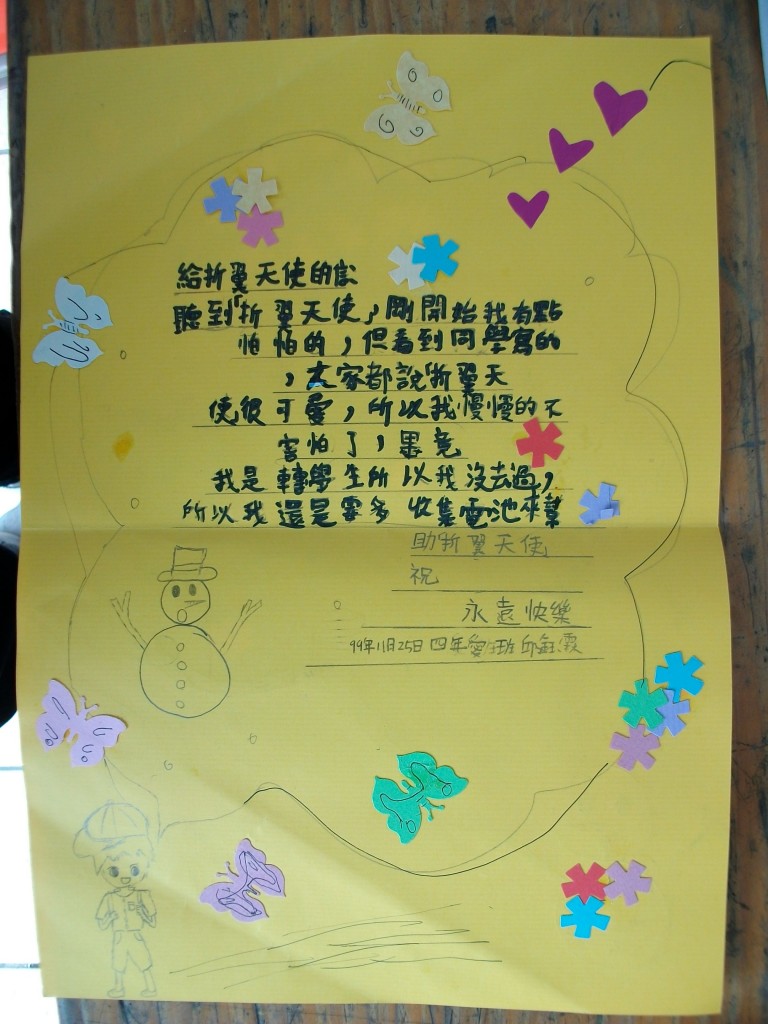 給折翼天使的話
聽到「折翼天使」剛開始我有點
怕怕的，但看到同學寫的
，大家都說折翼天
使很可愛，所以我慢慢的不
害怕了，畢竟
我是轉學生所以我沒去過，
所以我還是要多收集電池來幫
助折翼天使
祝
永遠快樂
99年11月25日 四年愛班 邱鈺